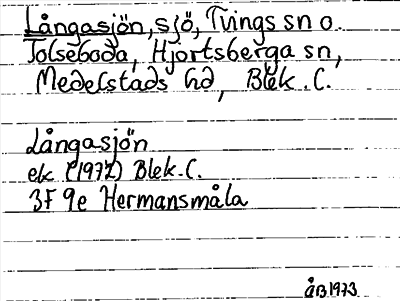 Långasjön, sjö, Tvings sn o.
Tolseboda, Hjortsberga sn,
Medelstads hd, Blek. C.
Långasjön
ek (1972) Blek. C.
3F 9e Hermansmåla
ÅB 1973